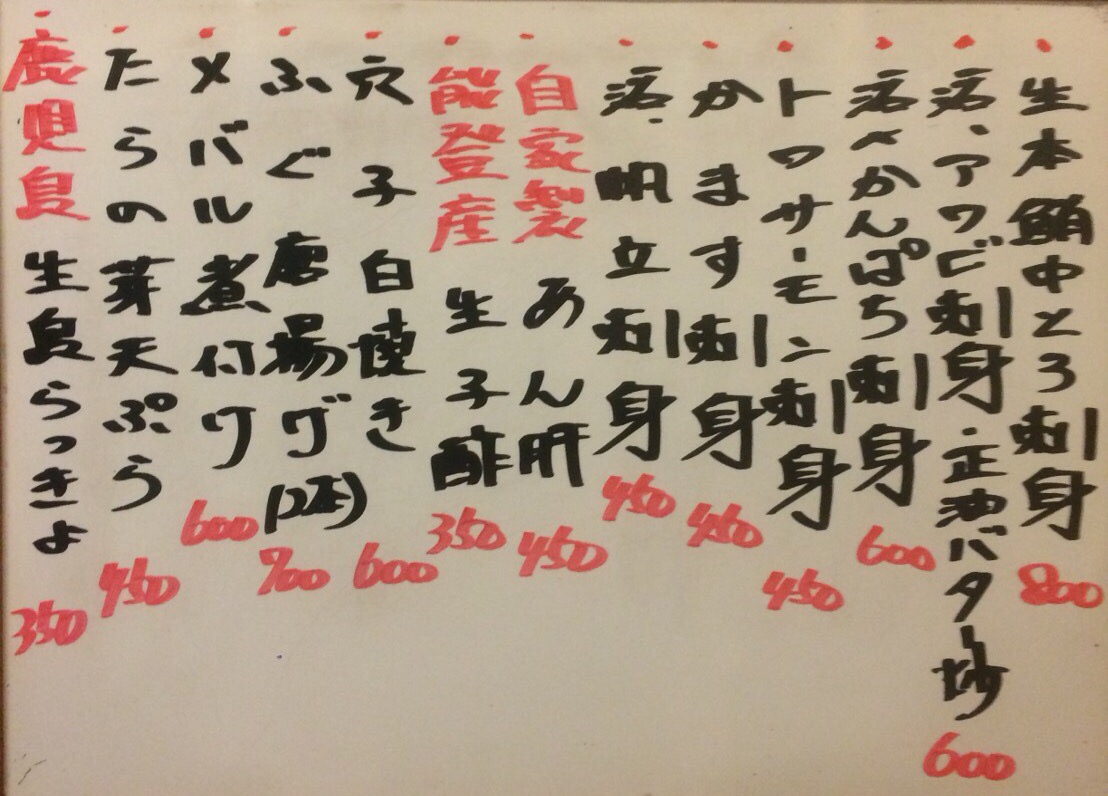 生本鮪中とろ刺身 800
活アワビ刺身・正油バター炒 600
活〆かんぱち刺身 600
トロサーモン刺身 450
かます刺身 450
活帆立刺身 450
自家製 あん肝 450
能登産 生子酢 350
穴子白焼き 600
ふぐ唐揚ゲ(2本) 700
メバル煮付ケ 600
たらの芽天ぷら 450
鹿児島 生島らっきょ 350